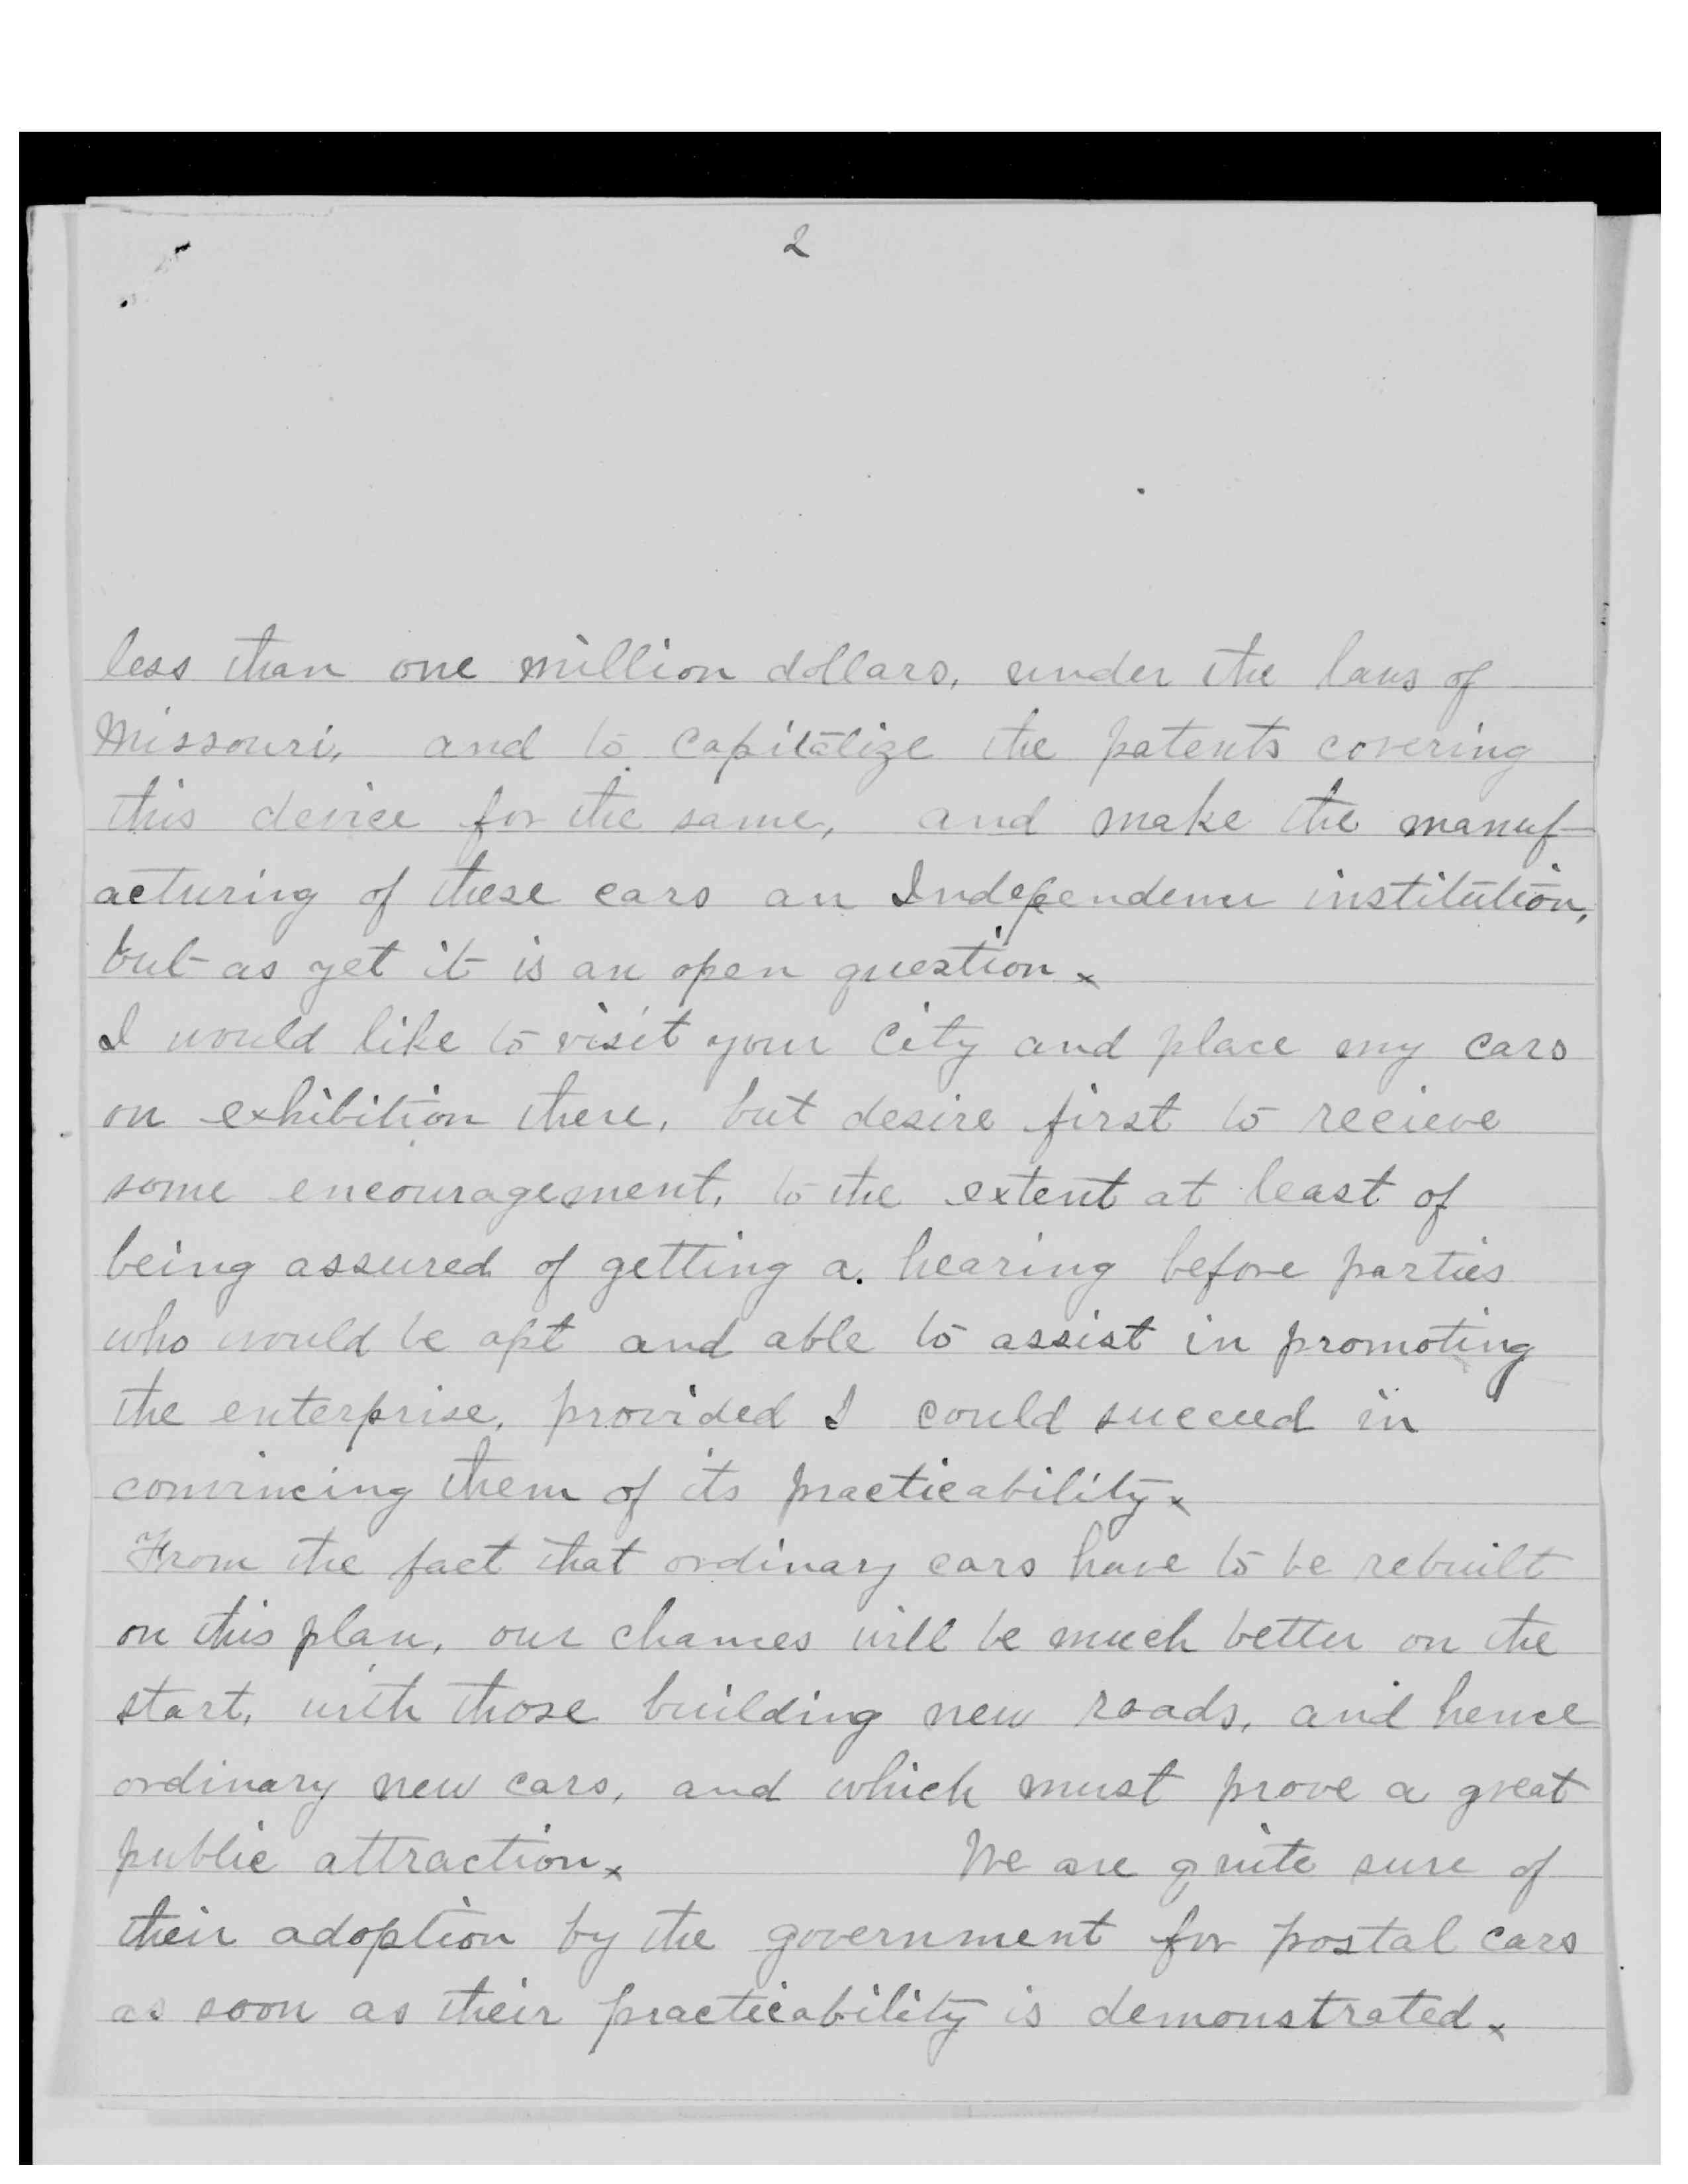 2
less than one million dollars, under the laws of
Missouri, and to capitalize the patents covering
this device for the same, and make the manuf-
acturing of these cars an Independenn institution,
but as yet it is an open question ×
I would like to visit your City and place my cars
on exhibition there, but desire first to recieve
some encouragement, to the extent at least of
being assured of getting a hearing before parties
who would be apt and able to assist in promoting
the enterprise, provided I could succeed in
convincing them of its practicability ×
From the fact that ordinary cars have to be rebuilt
on this plan, our chances will be much better on the
start, with those building new roads, and hence
ordinary new cars, and which must prove a great
public attraction × We are quite sure of
their adoption by the government for postal cars
as soon as their practicability is demonstrated ×